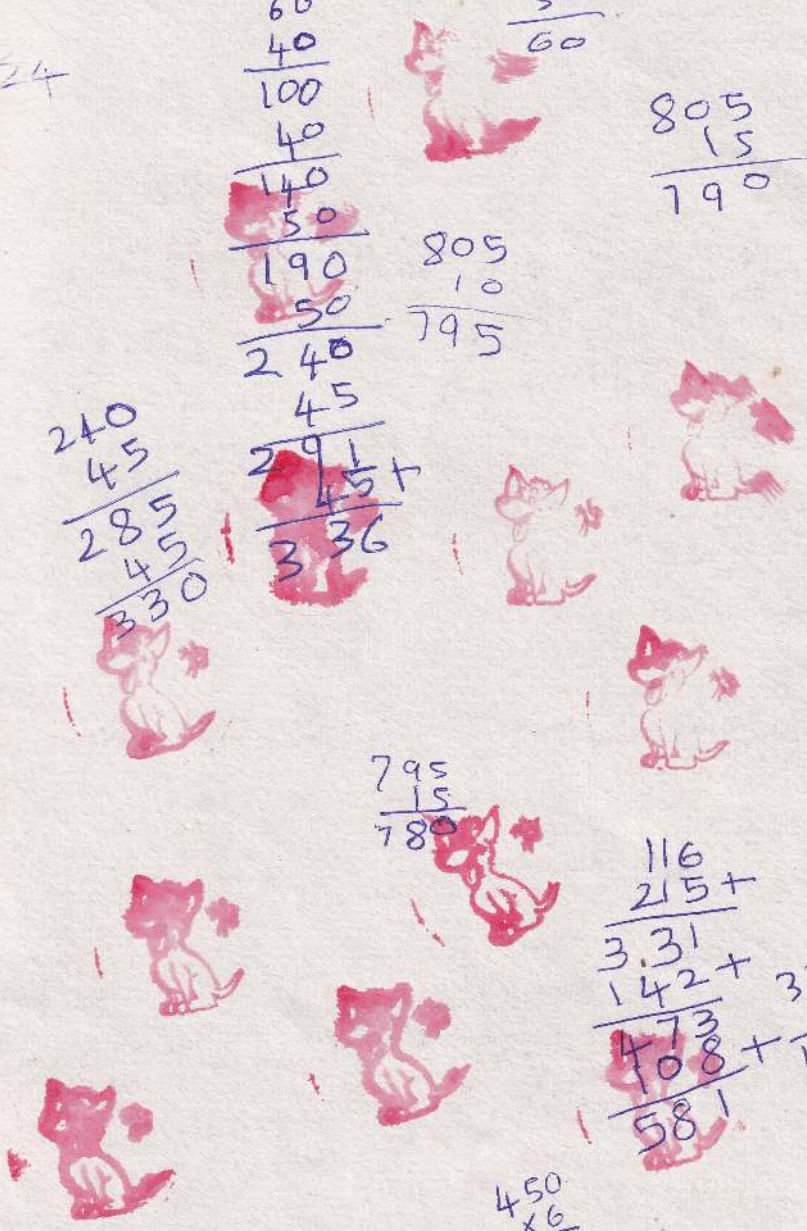 24
60
40
100
40
140
50
190
50
240
45
291
45+
336
60
805
15
790
805
10
795
240
45
285
45
330
795
15
780
116
215+
3.31
142+
473
108+
581
3
1
450
x6